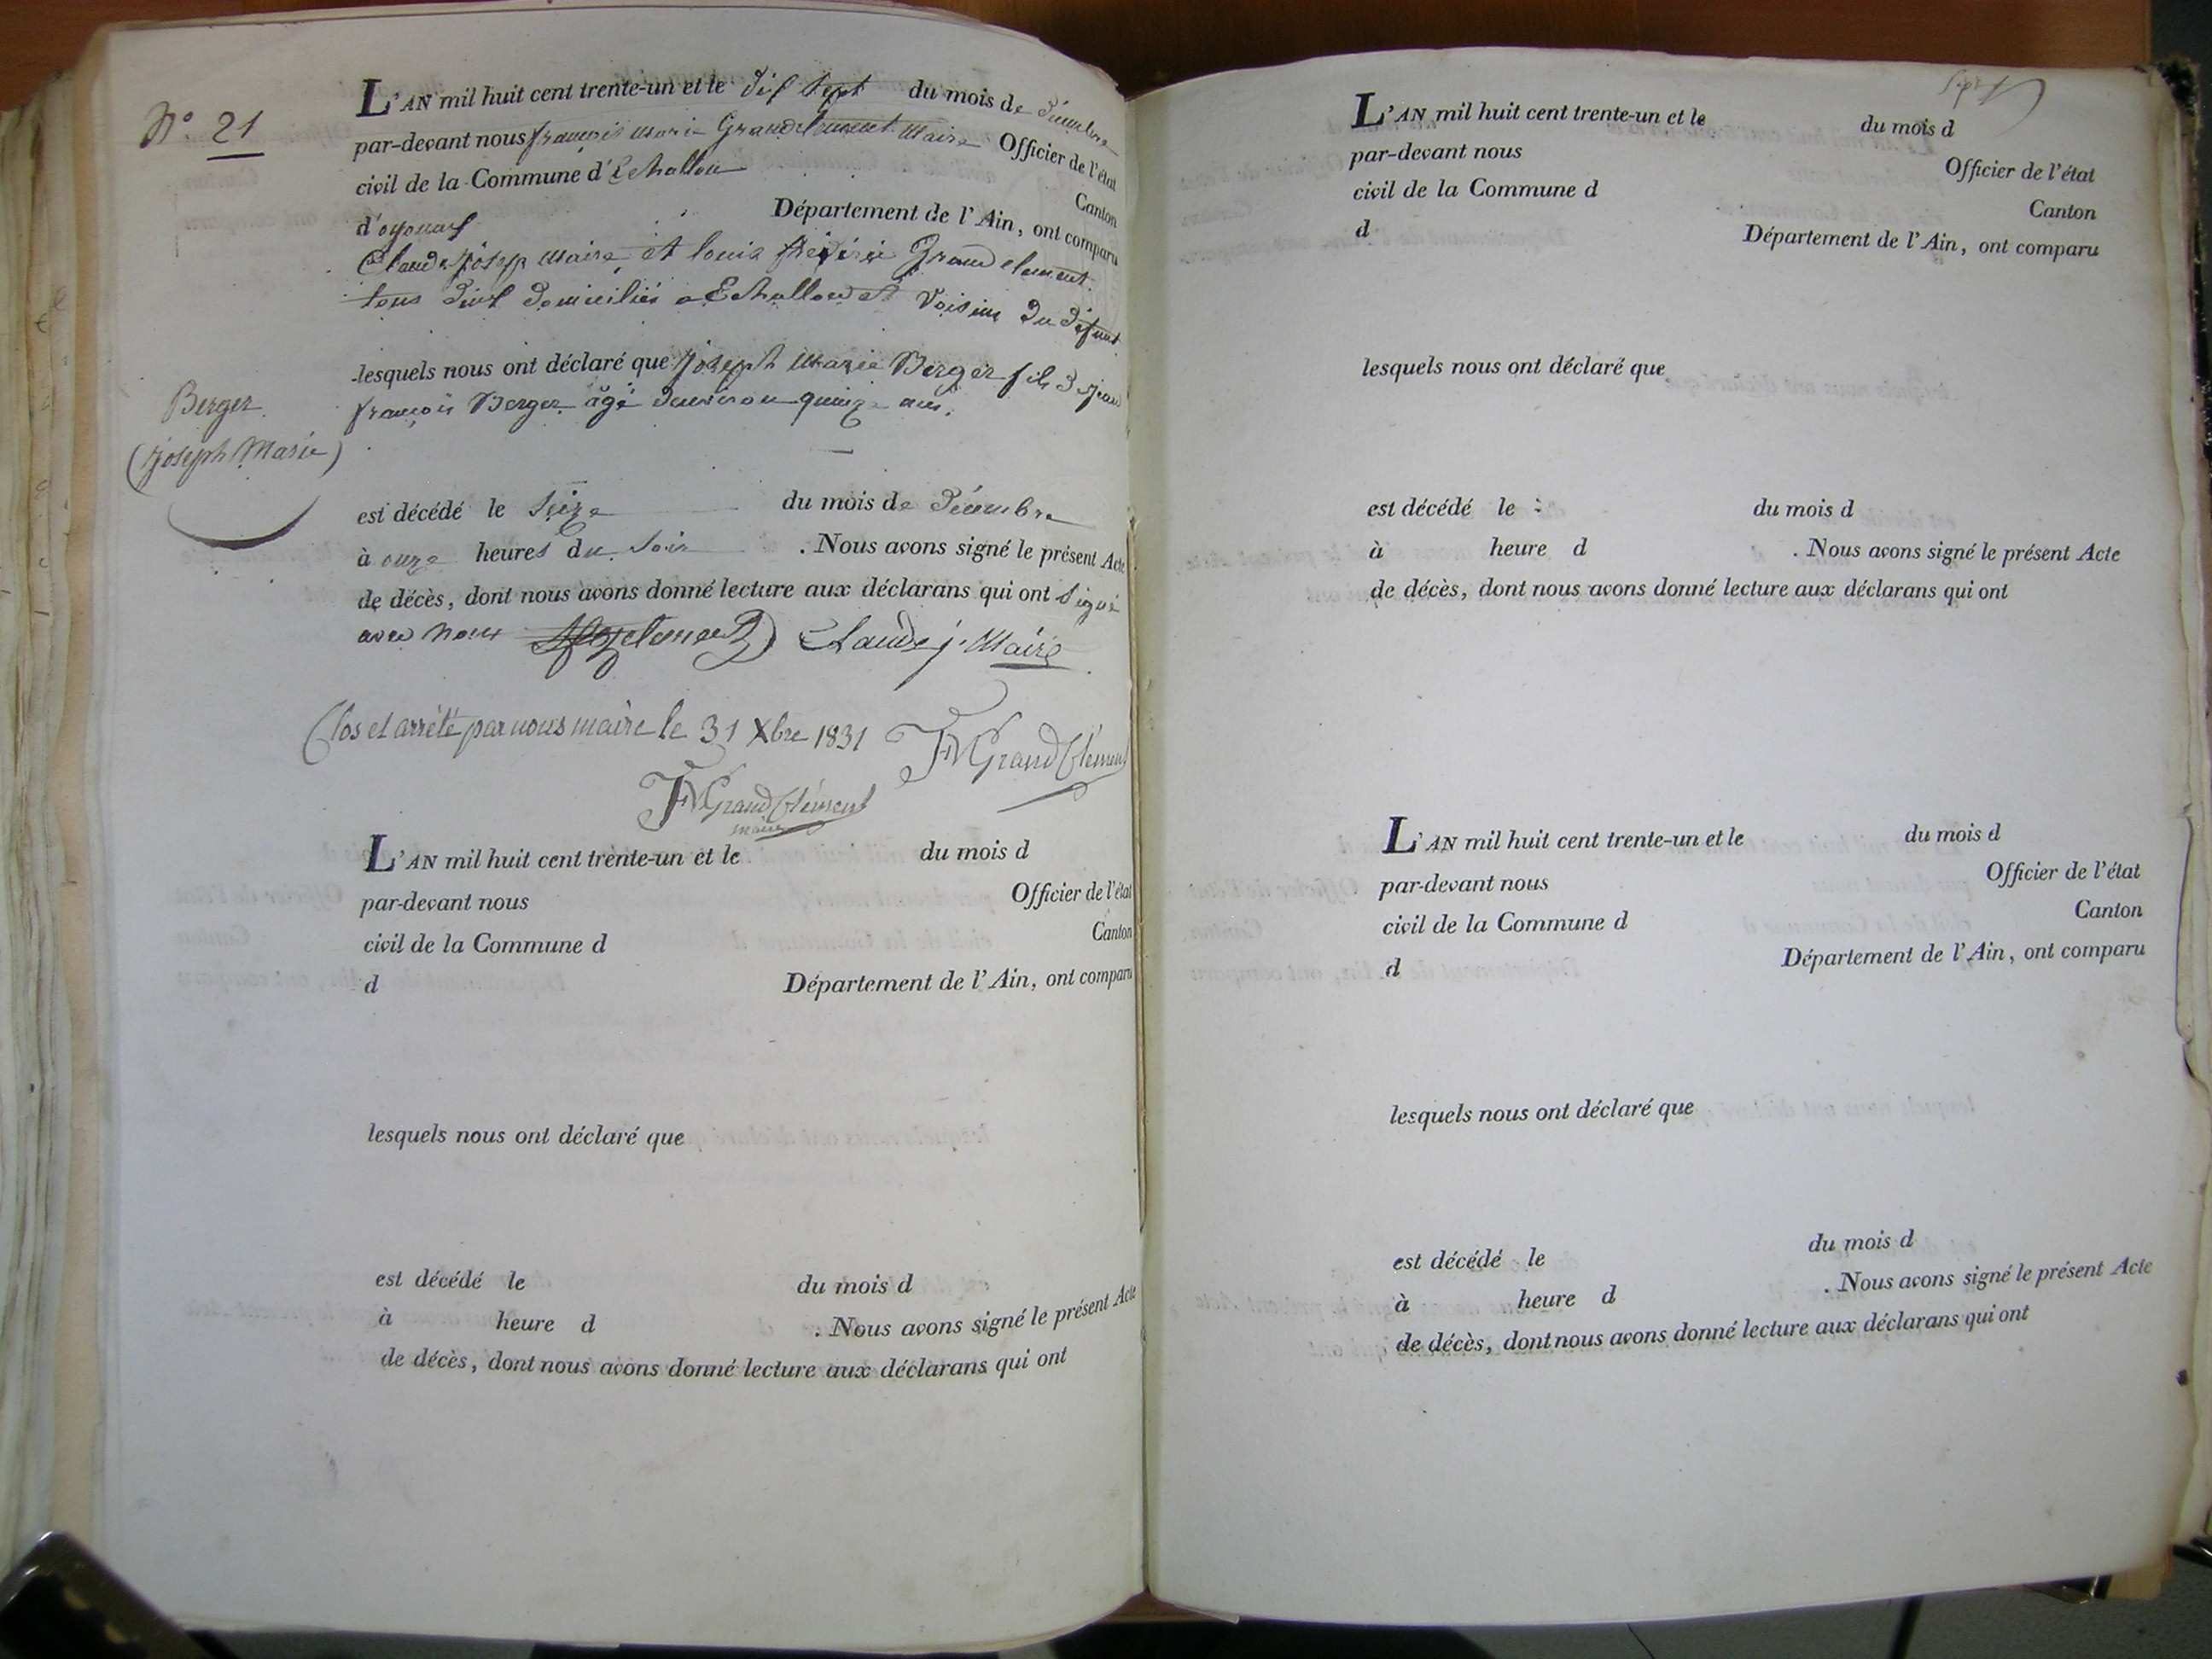 N° 21
L'AN mil huit cent trente-un et le dix sept du mois de Décembre
par-devant nous françois marie Grandclement Maire Officier de l'état
civil de la Commune d'Echallon Canton
d'oyonnax Département de l'Ain, ont comparu
Claude Josep Maire et louis Grandclement
tous deux domiciliés a Echallon et Voisins du défunt
lesquels nous ont déclaré que Joseph Marie Berger fils de Jean
françois Berger âgé d'environ quinze ans.
Berger
(Joseph Marie)
est décédé le Seize du mois de Décembre
à onze heures du Soir . Nous avons signé le présent Acte
de décès, dont nous avons donné lecture aux déclarans qui ont signé
avec nous Claude j. Maire
Clos et arrêté par nous maire le 31 Xbre 1831 FMGrandClément
FMGrandClément
maire
L'AN mil huit cent trente-un et le du mois d
par-devant nous Officier de l'état
civil de la Commune d Canton
d Département de l'Ain, ont comparu
lesquels nous ont déclaré que
est décédé le du mois d
à heure d . Nous avons signé le présent Acte
de décès, dont nous avons donné lecture aux déclarans qui ont
L'AN mil huit cent trente-un et le du mois d
par-devant nous Officier de l'état
civil de la Commune d Canton
d Département de l'Ain, ont comparu
lesquels nous ont déclaré que
est décédé le du mois d
à heure d . Nous avons signé le présent Acte
de décès, dont nous avons donné lecture aux déclarans qui ont
L'AN mil huit cent trente-un et le du mois d
par-devant nous Officier de l'état
civil de la Commune d Canton
d Département de l'Ain, ont comparu
lesquels nous ont déclaré que
est décédé le du mois d
à heure d . Nous avons signé le présent Acte
de décès, dont nous avons donné lecture aux déclarans qui ont